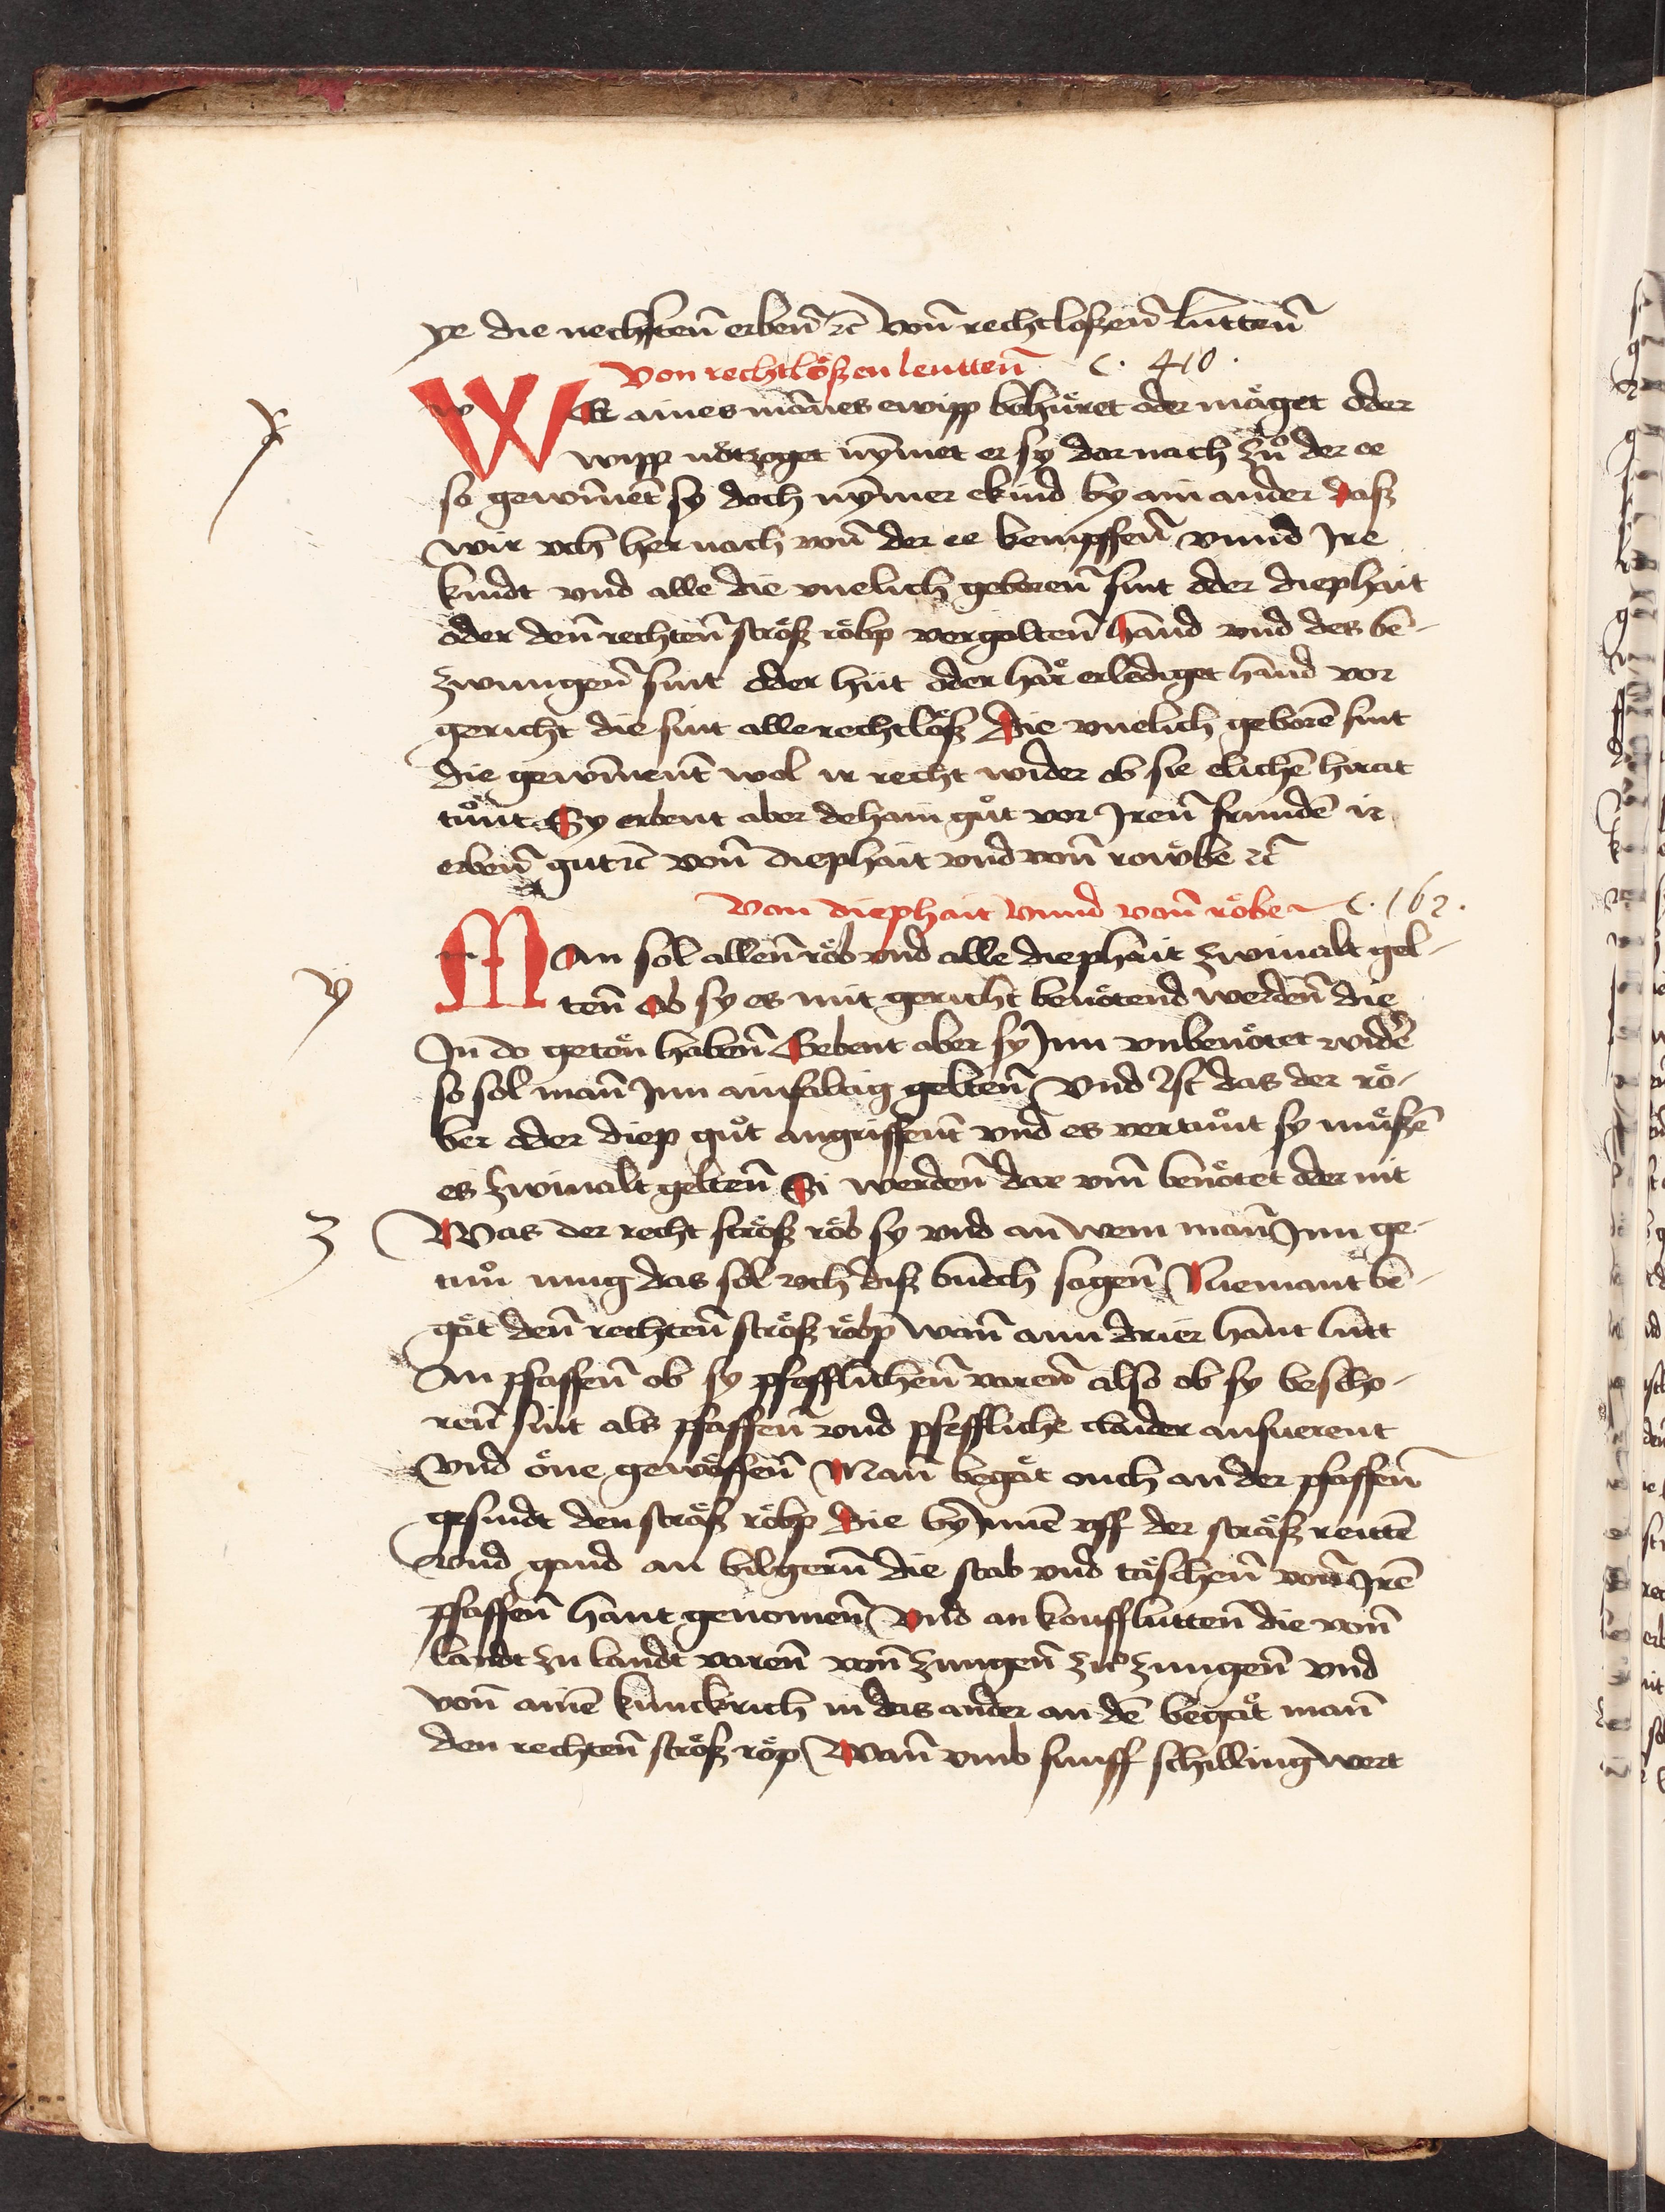 ye die nechstenn erbenn ꝛc vnn rechtloszenn luttenn
Von rechtlöszen leuttenn c. 410.
x
WEr aines mannes ewipp behüret oder mäget oder
wipp nötzoget nymmet er sy dar nach zuͦ der ee
so gewinnent sy doch nymmer ekind by ain ander dasz
wir och her nach von der ee kempffenn vnnd Jre
kindt vnd alle die vnelich geborenn sint oder diephait
oder denn rechtenn strösz röbp vergoltenn hand vnd des be-
zwungenn sint oder hüt oder har erlediget hand vor
gericht die sint alle rechtlösz Die vnelich geborē sint
die gewinnent wol ir recht wider ob sie elichē hirat
tuͦnt Sy erbent aber dehain guͦt vor Jrenn frundē ir
erbenn gut ꝛc vonn diephait vnd vonn rowbe ꝛc
Von diephait vnnd vonn röbe c. 162.
y
MAn sol allenn röb vnd alle diephait zwiualt gel-
tenn Ob sy es mit gericht benötend werdenn die
Jn do getön habenn Gebent aber sy Jnn vnbenötet widē
so sol mann Jnn ainfaltig geltenn Vnd Ist das der rö-
ber oder diep guͦt angriffent vnd es vertuͦnt sy müszē
es zwiualt geltenn Si werdenn dar vmm benötet oder nit
z
Was der recht strösz röb sy vnd an wem mann Jnn ge-
tuͦn mug das sol och disz buech sagenn Niemant be-
gät denn rechtenn strösz röbp wann ann drier hant lutt
An pfaffenn ob sy pfefflichenn varenn also ob sy bescho-
renn sint als pfaffenn vnd pfeffliche claider anfuerent
vnd öne gewäffenn Mann begät ouch an der pfaffenn
gesindt den sträsz röbp Die by Jnnē vff der sträsz rittē
vnd gand an bilgerin die stab vnd täschenn vonn Jrē
pfaffenn hant genomenn Vnd an koufflüttenn die vonn
landt zu landt varenn vonn zungenn zuͦ zungenn vnd
vonn ainē kunckrich in das ander an dē begät mann
den rechtenn strösz röp Wann vmb funff schilling wert